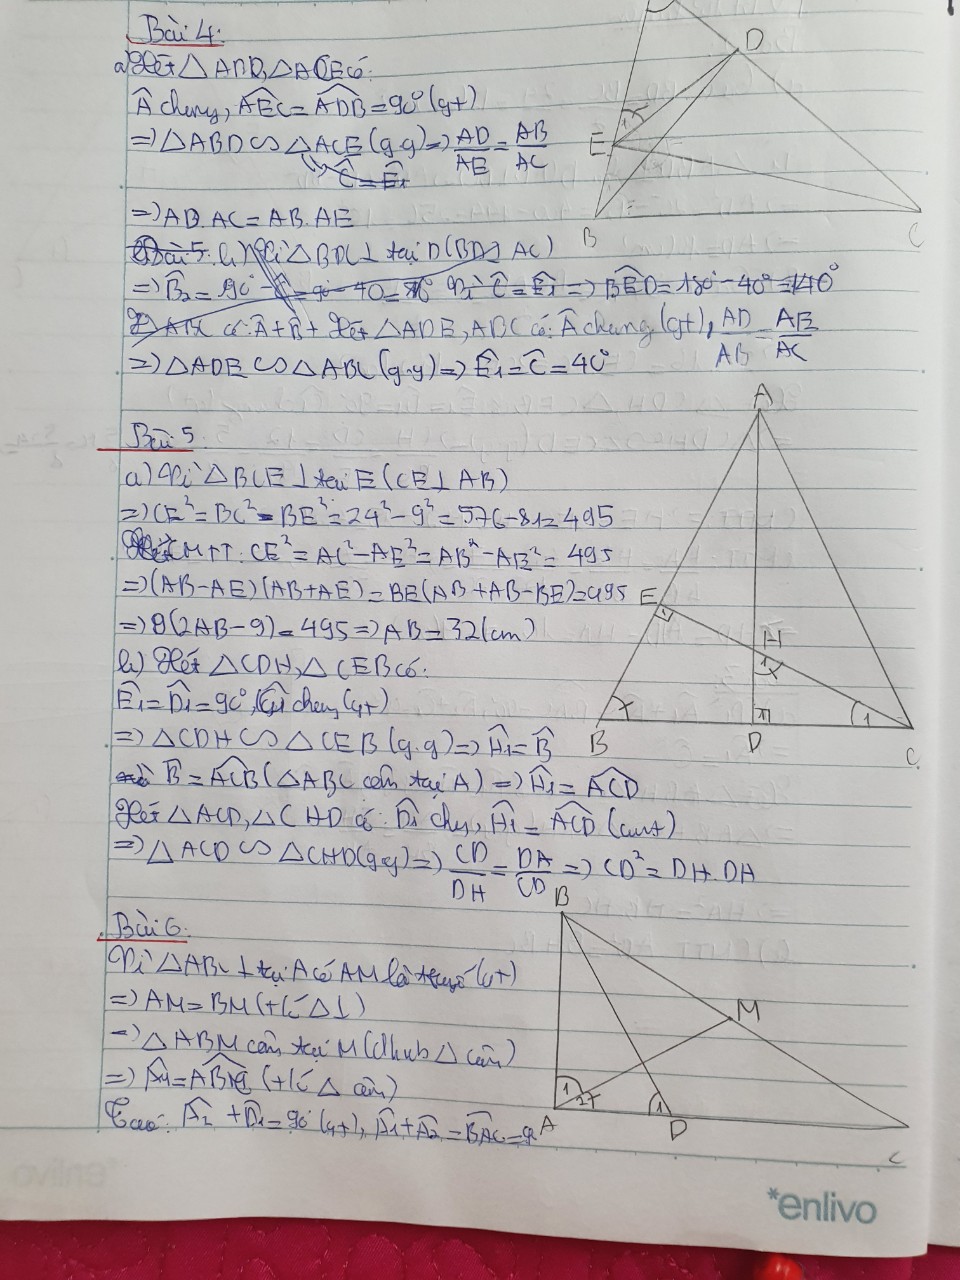 Bài 4:
a) Xét △ ADB, △ ACE có:
Â chung, AEC = ADB = 90° (gt)
=> △ABD ∽ △ACE (g.g) => AD/AE = AB/AC
Ĉ = Ê1
=> AD.AC = AB.AE
Bài 5: b) Vì △BDC ⊥ tại D (BD ⊥ AC)
=> B̂2 = 90 - Ĉ = 90 - 40 = Vì Ĉ = Ê1 => BED = 180° - 40° = 140°
có Â + B̂ + Xét △ADE, ABC có: Â chung (gt), AD/AB = AE/AC
=> △ADE ∽ △ABC (g.g) => Ê1 = Ĉ = 40°
Bài 5:
a) Vì △BCE ⊥ tại E (CE ⊥ AB)
=> CE² = BC² - BE² = 24² - 9² = 576 - 81 = 495
CMTT: CE² = AC² - AE² = AB² - AE² = 495
=> (AB - AE)(AB + AE) = BE(AB + AB - BE) = 495
=> 9(2AB - 9) = 495 => AB = 32 (cm)
b) Xét △CDH, △CEB có:
Ê1 = D̂1 = 90°, Ĉ1 chung (gt)
=> △CDH ∽ △CEB (g.g) => Ĥ1 = B̂
B̂ = ACB (△ABC cân tại A) => Ĥ1 = ACD
Xét △ACD, △CHD có: D̂1 chung, Ĥ1 = ACD (cmt)
=> △ACD ∽ △CHD (g.g) => CD/DH = DA/CD => CD² = DH.DA
Bài 6:
Vì △ABC ⊥ tại A có AM là (gt)
=> AM = BM (t/c △⊥)
=> △ABM cân tại M (dhnb △ cân)
=> Â1 = ABM (t/c △ cân)
Ta có: Â2 + D̂1 = 90° (gt), Â1 + Â2 = BAC = 90
D
1
x
E
B
C
A
E
1
H
1
x
x
1
B
D
C
B
M
1
2
x
1
A
D
C
*enlivo